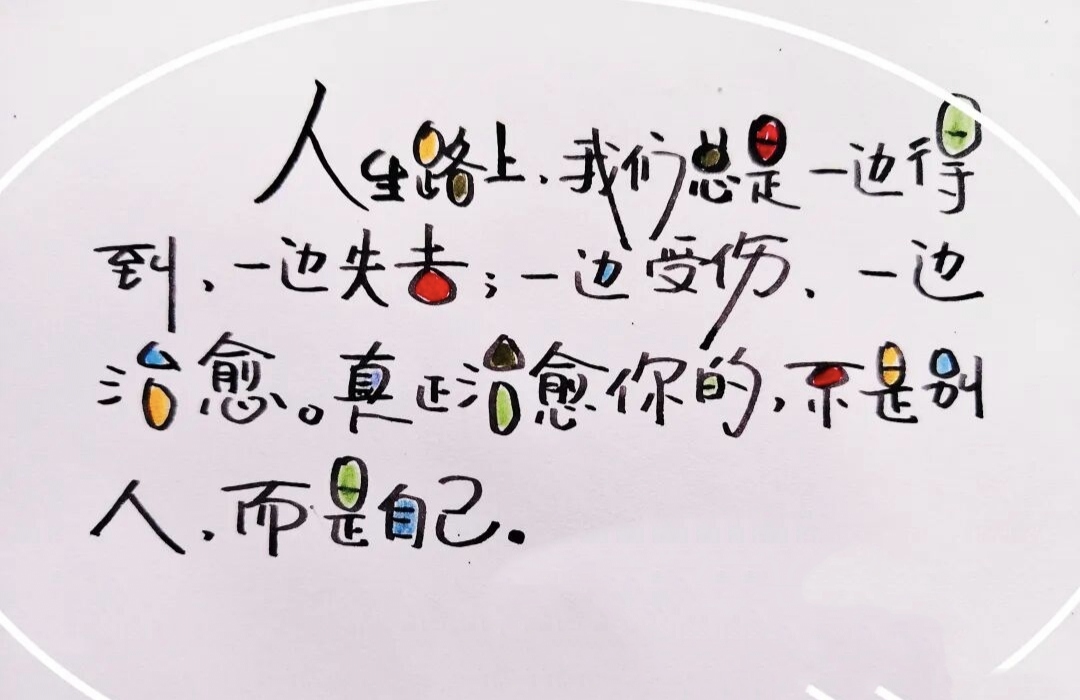 人生路上,我们总是一边得
到,一边失去;一边受伤,一边
治愈。真正治愈你的,不是别
人,而是自己.